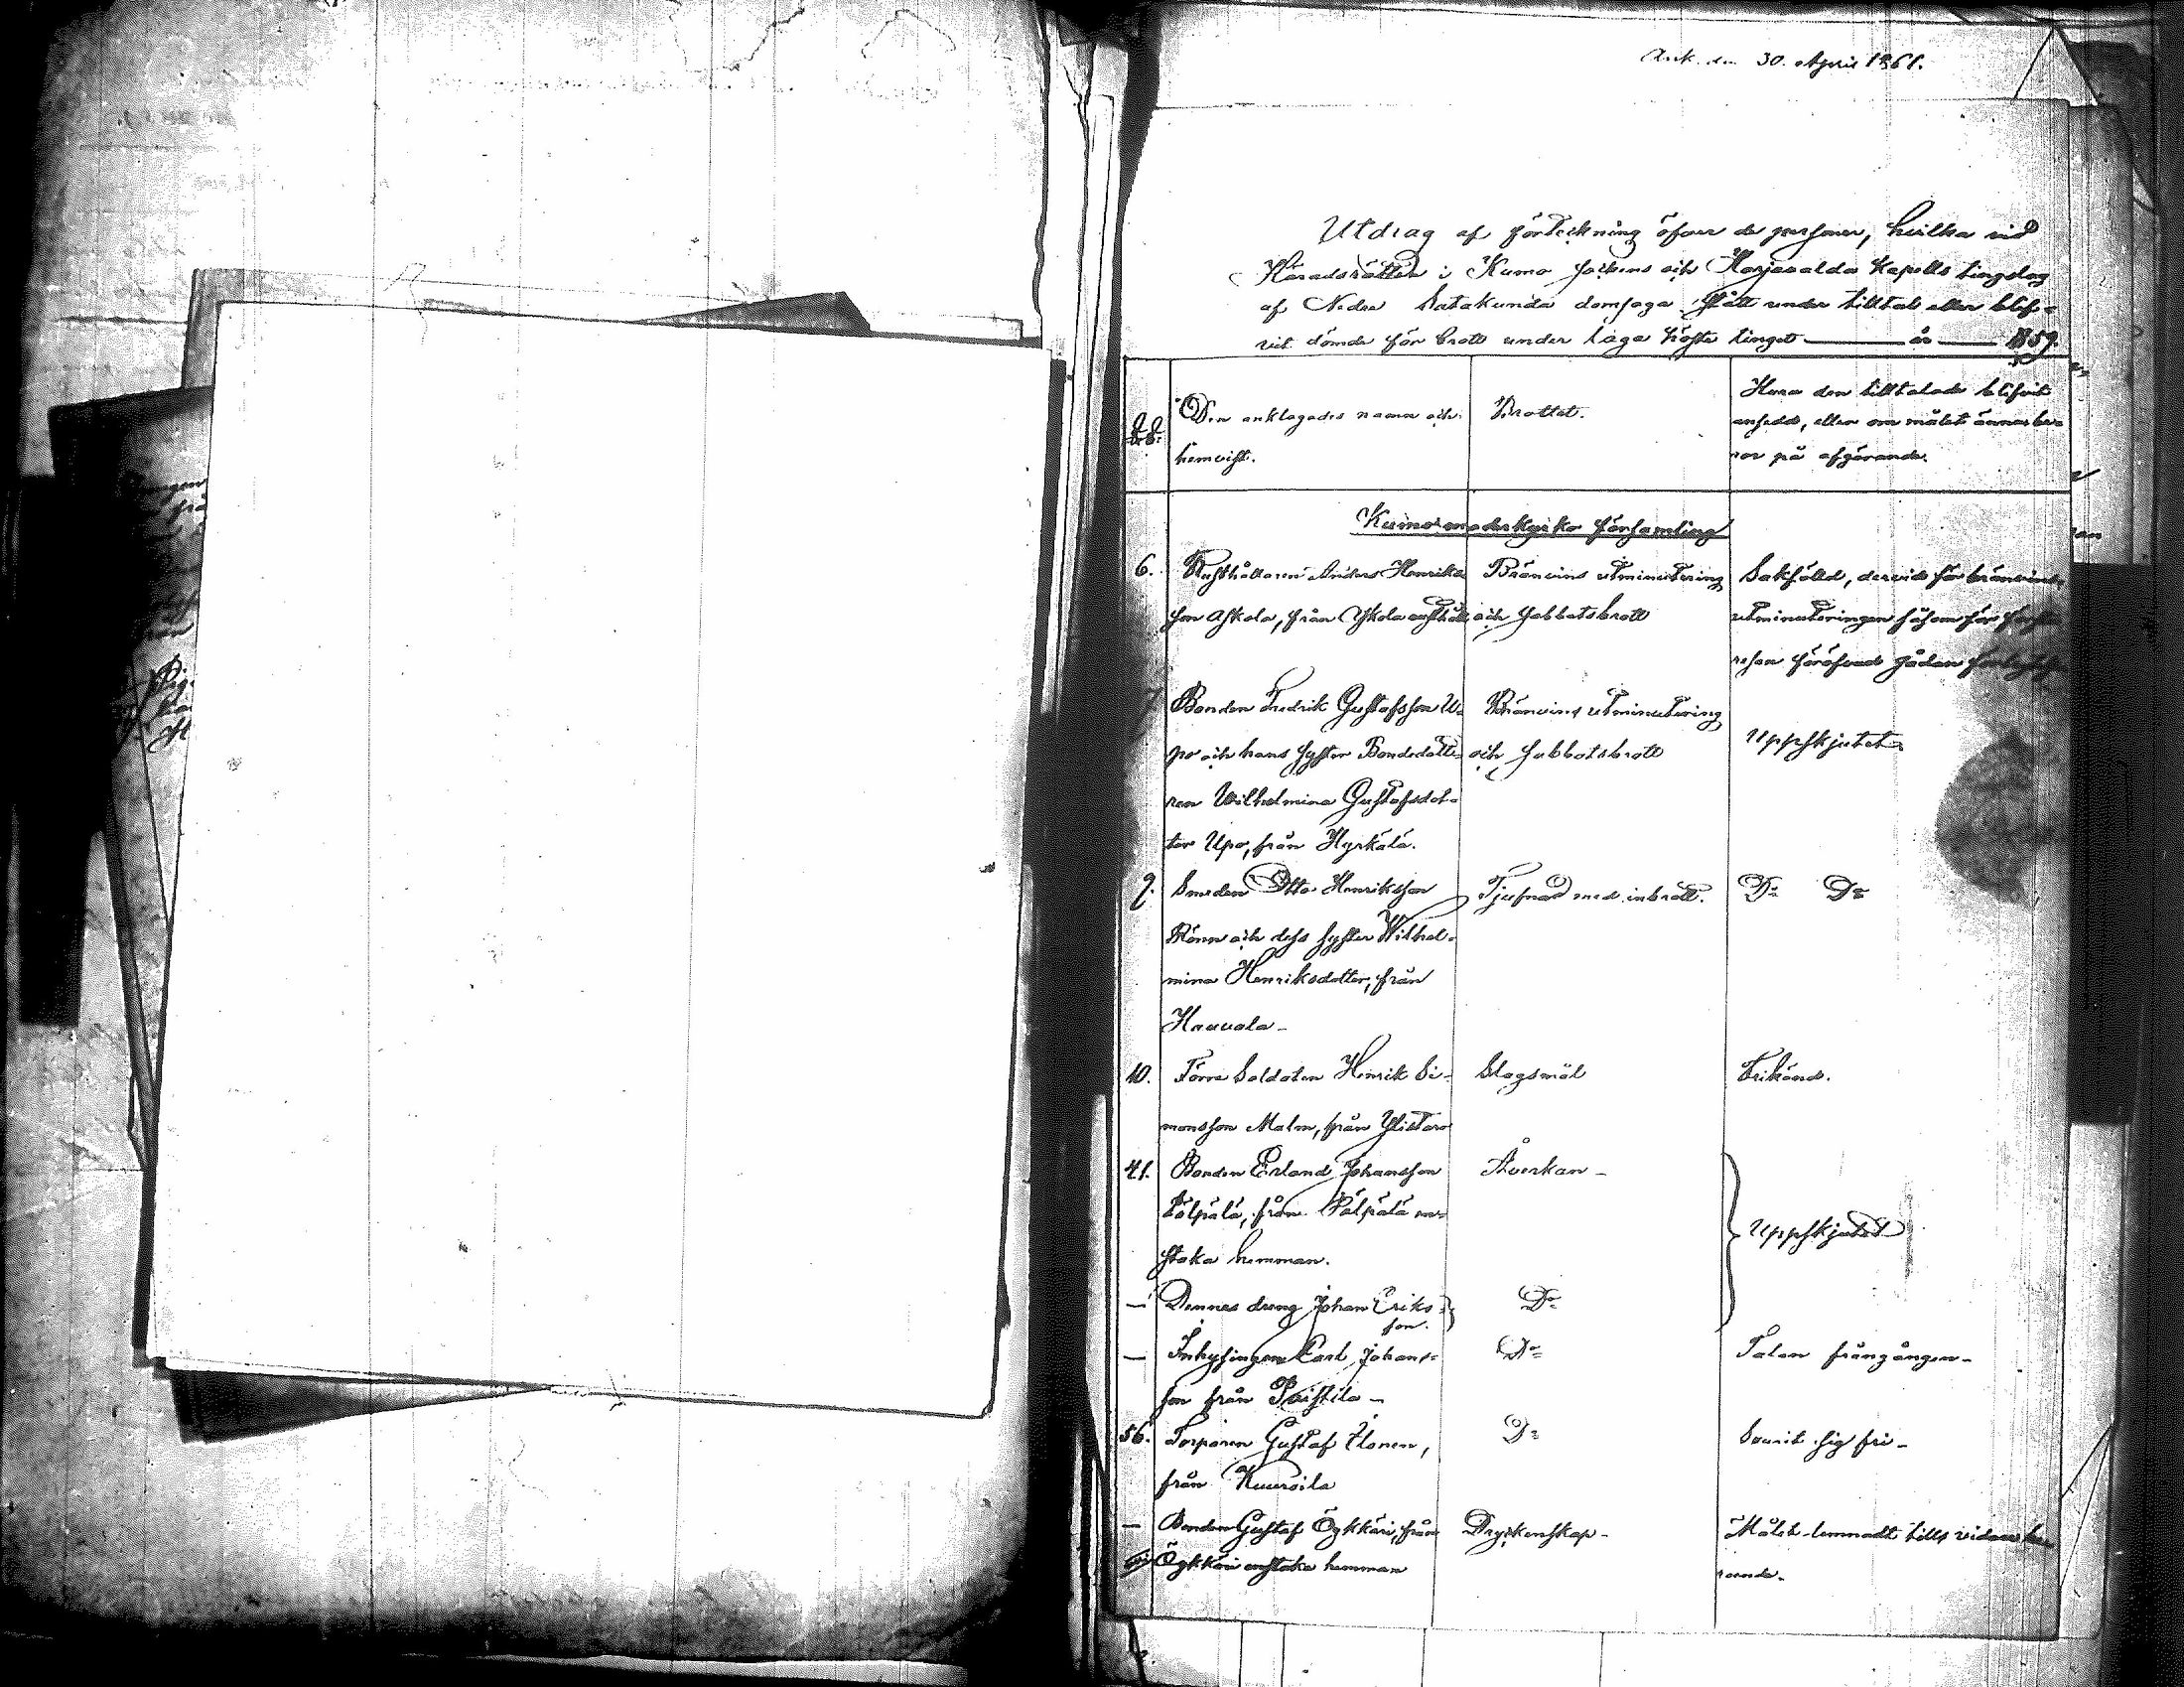 Ank. den 30. April 1861.
Utdrag af förteckning öfver de personer, hvilka vid
Häradsrätten i Kumo Sockens och Harjavalda Kapells tingslag
af Nedra Satakunda domsaga stått under tilltal eller blif-
vit dömda för brott under laga höste tinget — år — 1859.
Den anklagades namn och
hemvist.
Brottet.
Huru den tilltalade blifvit
ansedd, eller om målet ännu be-
ror på afgörande.
Kumo moderkyrko församling
6. Rusthållaren Anders Henriks-
son Yskola, från Yskola
Bränvins utminutering
och sabbatsbrott
Sakfälld, dervid för bränvins
utminuteringen såsom för första
resan föröfvad sådan
7. Bonden Fredrik Gustafsson U-
po och hans syster Bondedotte-
ren Wilhelmina Gustafsdot-
ter Upo, från Hyrkälä.
Bränvins utminutering
och sabbatsbrott
Uppskjutet
9. Smeden Otto Henriksson
Rönn och dess syster Wilhel-
mina Henriksdotter, från
Haavala -
Tjufnad med inbrott.
Do Do
10. Förre Soldaten Henrik Si-
monsson Malm, från Ylistaro
Slagsmål
Frikänd.
41. Bonden Erland Johansson
Pälpälä, från Pälpälä en-
staka hemman.
Åverkan -
Uppskjutet
— Dennes dreng Johan Eriks-
son.
Do
— Inhysingen Carl Johans-
son från Paistila -
Do
Talan frångången -
56. Torparen Gustaf Ilonen,
från Kuurola
Do
Svurit sig fri -
— Bonden Gustaf Ögkkäri, från
Ögkkäri enstaka hemman
Dryckenskap -
Målet lemnadt tills vidare be-
roende.